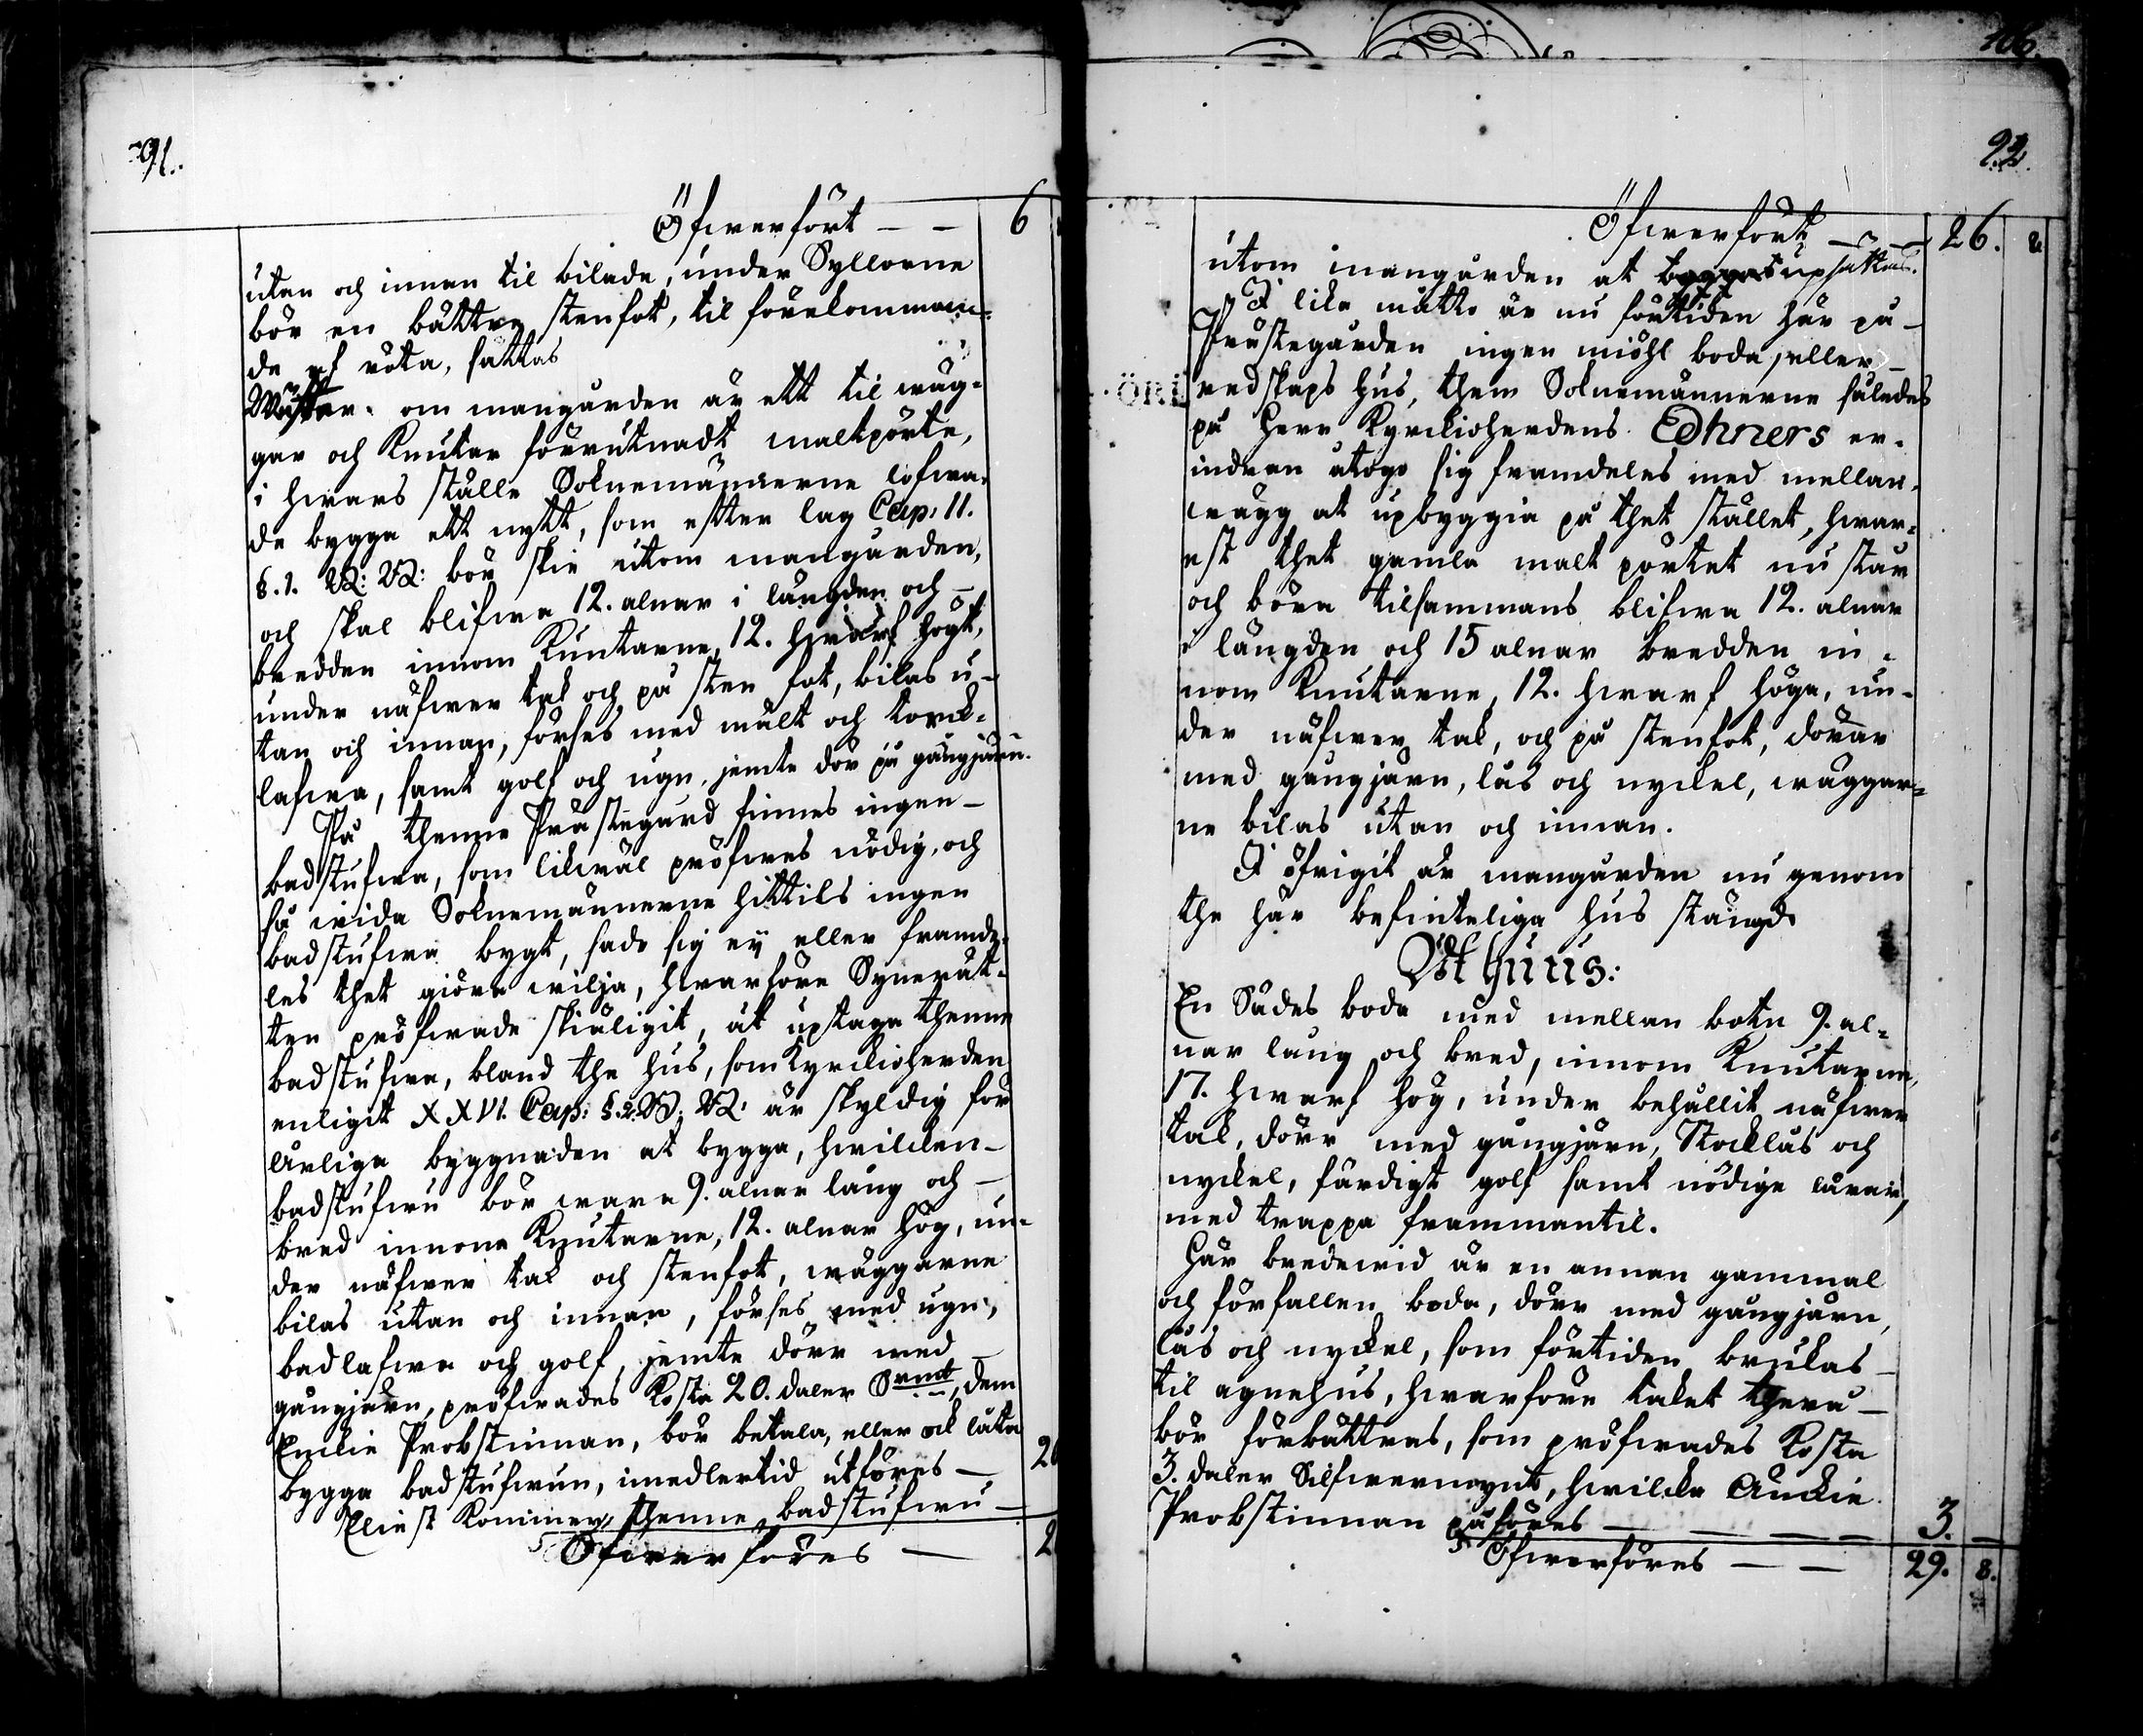 91.
Öfwerfört — — 6
utan och innan til bilade, under Syllorne
bör en bättre stenfot, til förekomman-
de af röta, sättas
Wäster om mangården är ett til wäg-
gar och Knutar förrutnadt maltpörte,
i hwars ställe Soknemännerne lofwa-
de bygga ett nytt, som efter lag Cap: 11.
§. 1. B: B: bör skie utom mangården,
och skal blifwa 12. alnar i längden och —
bredden innom Knutarne, 12. hwarf högt,
under näfwer tak och på sten fot, bilas u-
tan och innan, förses med mält och torck-
lafwa, samt golf och ugn, jemte dör på gångjärn.
På thenne Prästegård finnes ingen —
badstufwa, som likwäl pröfwes nödig, och
så wida Soknemännerne hittils ingen
badstufwa bygt, sade sig ey eller framde-
les thet giöra wilja, hwarföre Synerät-
ten pröfwade skiäligit, at uptaga thenne
badstufwa, bland the hus, som Kyrckioherden
enligit XXVI. Cap: §. 2. B: B: är skyldig för
årliga byggnaden at bygga, hwilcken —
badstufwu bör wara 9. alnar lång och —
bred innom Knutarne, 12. alnar hög, un-
der näfwer tak och stenfot, wäggarne
bilas utan och innan, förses med ugn,
badlafwa och golf, jemte dörr med —
gångjärn, pröfwades Kosta 20. daler Srmt, dem
Enckie Probstinnan, bör betala, eller ock låta
bygga badstufwun, imedlertid utföres — 20
Eliest Kommer thenne badstufwu —
Öfwerföres — 2
106.
92.
Öfwerfört — — 26. 8
utom mangården at upsättas.
I lika måtto är nu förtiden här på —
Prästegården ingen miöhl boda, eller —
redskaps hus, them Soknemännerne således
på Herr Kyrckioherdens Edhners er-
indran åtogo sig framdeles med mellan-
wägg at upbyggia på thet stället, hwar-
est thet gamla malt pörtet nu står
och böra tilsammans blifwa 12. alnar
i längden och 15 alnar bredden in-
nom Knutarne, 12. hwarf höga, un-
der näfwer tak, och på stenfot, dörar
med gångjärn, lås och nyckel, wäggar-
ne bilas utan och innan.
I öfrigit är mangården nu genom
the här befinteliga hus stängd
Uthuus:
En Sädes boda med mellan botn 9. al-
nar lång och bred, innom Knutarne,
17. hwarf hög, under behållit näfwer
tak, dörr med gångjärn, Stocklås och
nyckel, färdigt golf samt nödige lårar,
med trappa frammantil.
Här bredewid är en annan gammal
och förfallen boda, dörr med gångjärn,
lås och nyckel, som förtiden brukas —
til agnehus, hwarföre taket therå —
bör förbättras, som pröfwades Kosta
3. daler Silfwermynt, hwilcka Enckie
Probstinnan påföres — — — 3. —
Öfwerföres — — 29. 8.